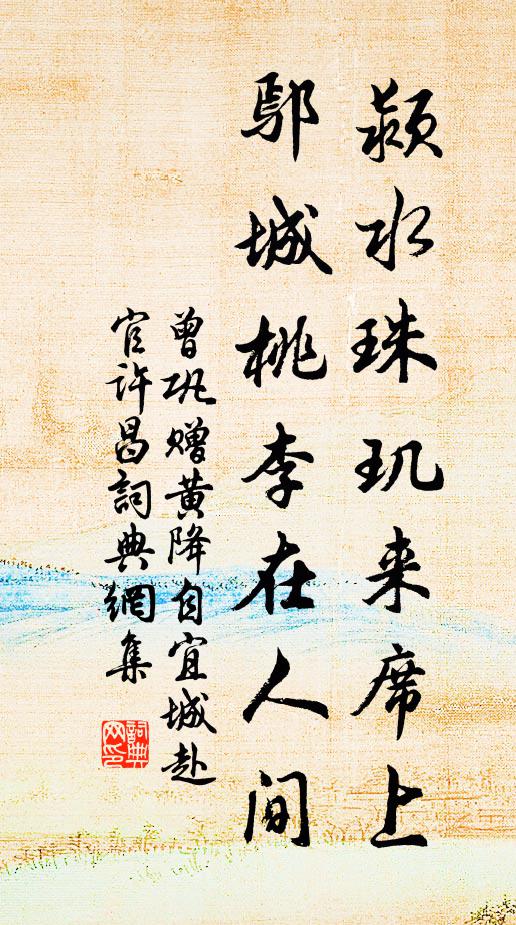 颍水珠玑来席上
鄢城桃李在人间
曾巩赠黄降自宜城赴
官许昌詞典網集
詞典
网印